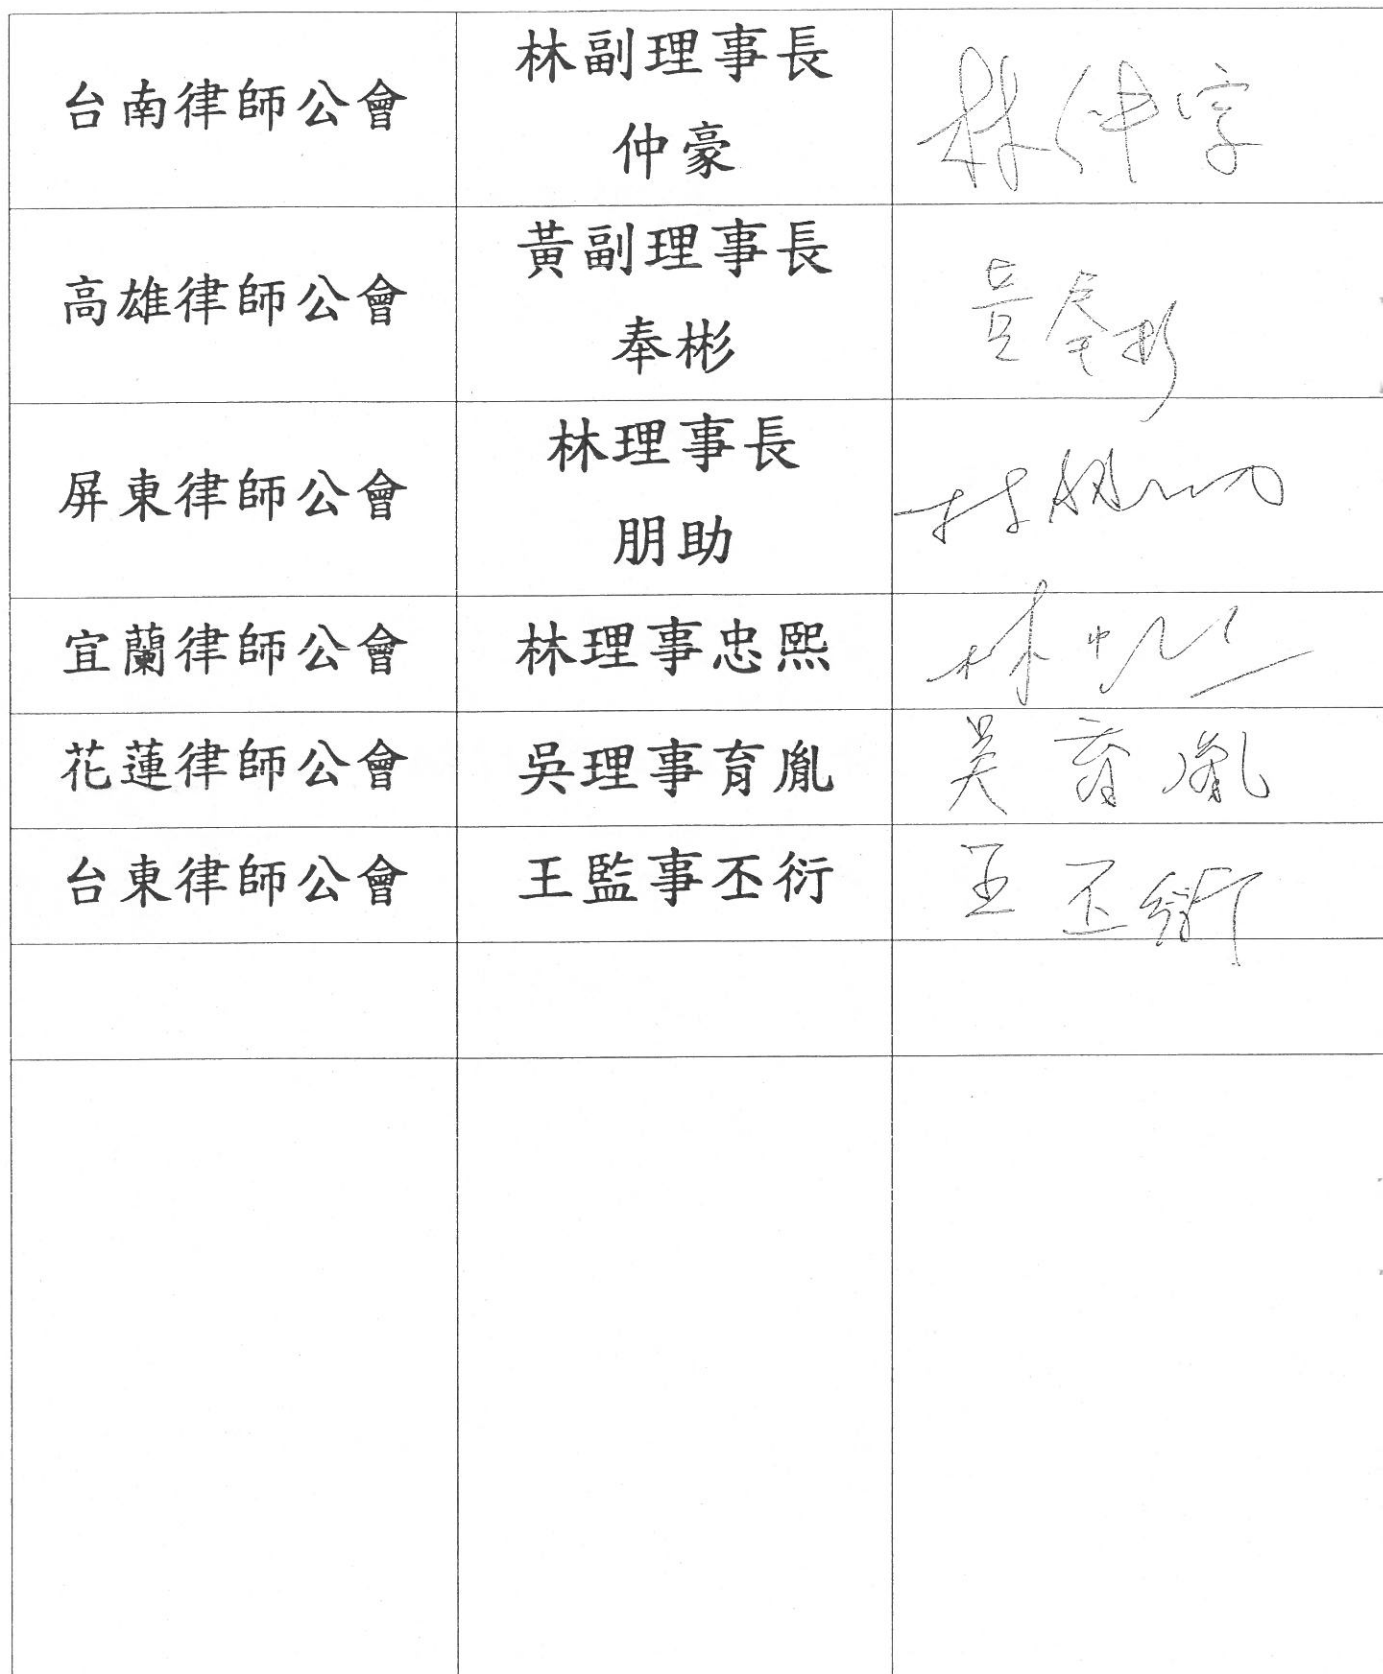 台南律師公會
林副理事長
仲豪
高雄律師公會
黃副理事長
奉彬
黃奉彬
屏東律師公會
林理事長
朋助
宜蘭律師公會
林理事忠熙
花蓮律師公會
吳理事育胤
吳育胤
台東律師公會
王監事丕衍
王丕衍